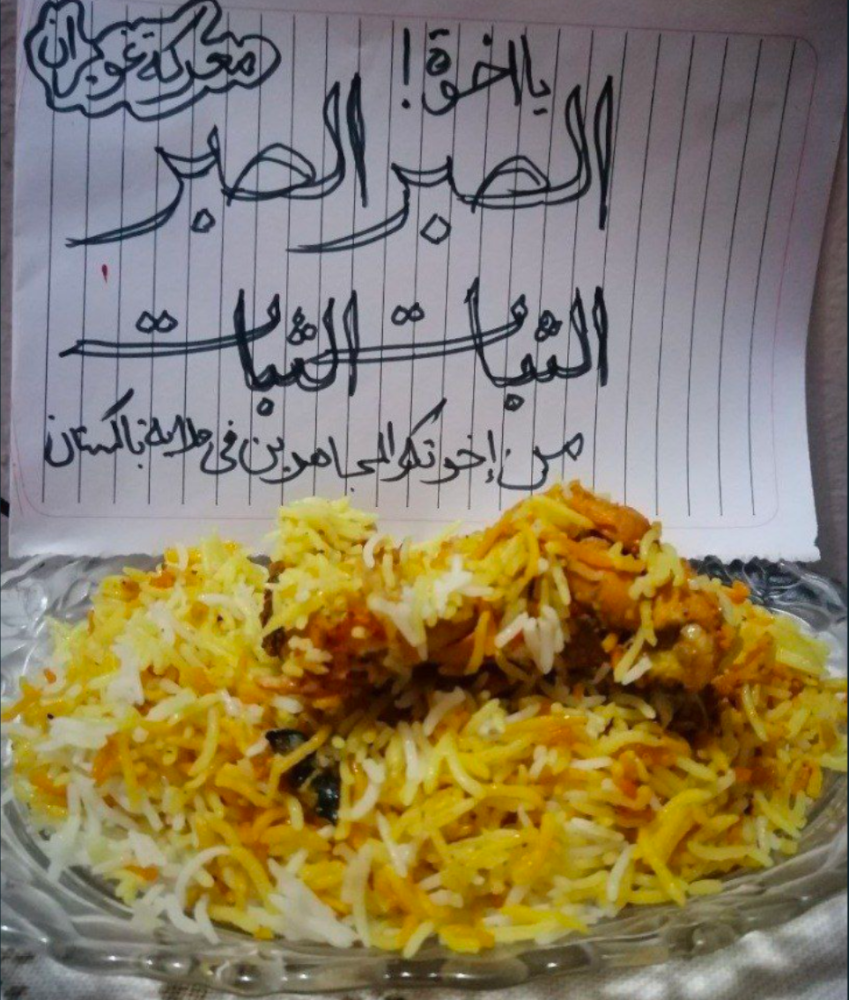 معركة غويران
يا اخوة!
الصبر الصبر
الثبات الثبات
من إخوتكم المجاهدين في ولاية باكستان